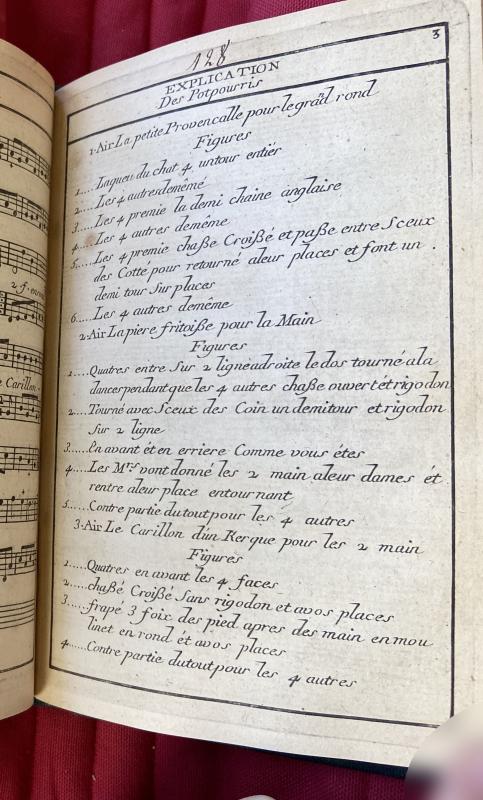 128
3
EXPLICATION
Des Potpourris
1-Air La petite Provencalle pour le grād rond
Figures
1....Laqueu du chat 4 untour entiér
2....Les 4 autres demêmé
3....Les 4 premie la demi chaine anglaise
4....Les 4 autres deméme
5....Les 4 premie chaße Croißé et paße entre Sceux
des Cotté pour retourné aleur places et font un .
demi tour Sur places
6.....Les 4 autres deméme
2-Air La piere fritoiße pour la Main
Figures
1....Quatres entre Sur 2 ligne adroite le dos tourné ala
dancer pendant que les 4 autres chaße ouvert ét rigodon
2....Tourné avec Sceux des Coin un demitour et rigodon
Sur 2 ligne
3.....En avant ét en erriere Comme vous étes
4....Les Mrs vont donné les 2 main aleur dames ét
rentre aleur place entournant
5.....Contre partie dutout pour les 4 autres
3-Air Le Carillon d'un Kerque pour les 2 main
Figures
1.....Quatres en avant les 4 faces
2.....chaßé Croißé Sans rigodon et avos places
3....frapé 3 foix des pied apres des main en mou
linet en rond ét avos places
4.....Contre partie dutout pour les 4 autres
2 f.
Carillon